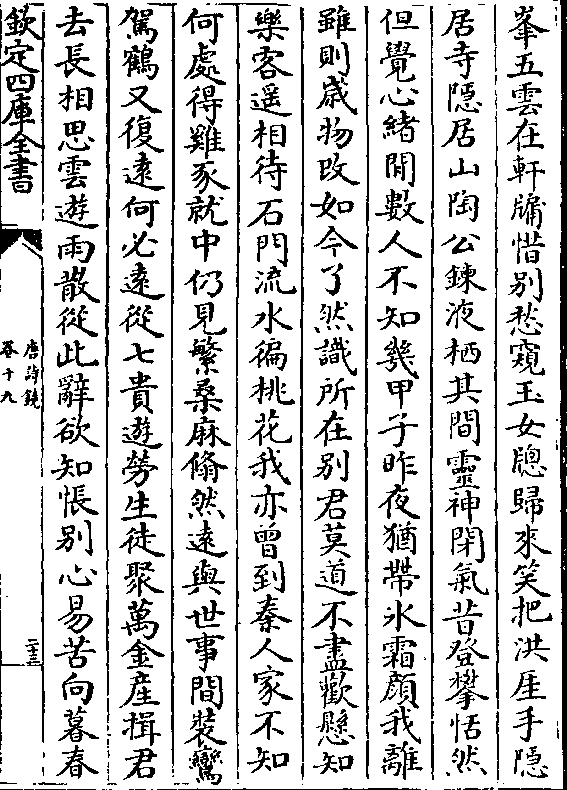 峯五雲在軒牖惜别愁窺玉女牕歸來笑把洪厓手隱
居寺隱居山陶公鍊液栖其間靈神閉氣昔登攀恬然
但覺心緒閒數人不知幾甲子昨夜猶帶氷霜顔我離
雖則歲物改如今了然識所在别君莫道不盡歡懸知
樂客遥相待石門流水徧桃花我亦曾到秦人家不知
何處得雞豕就中仍見繁桑麻翛然遠與世事間裝鸞
駕鶴又復逺何必逺從七貴遊勞生徒聚萬金産揖君
去長相思雲遊雨散從此辭欲知悵别心易苦向暮春
欽定四庫全書
唐詩鏡
卷十九
二十三